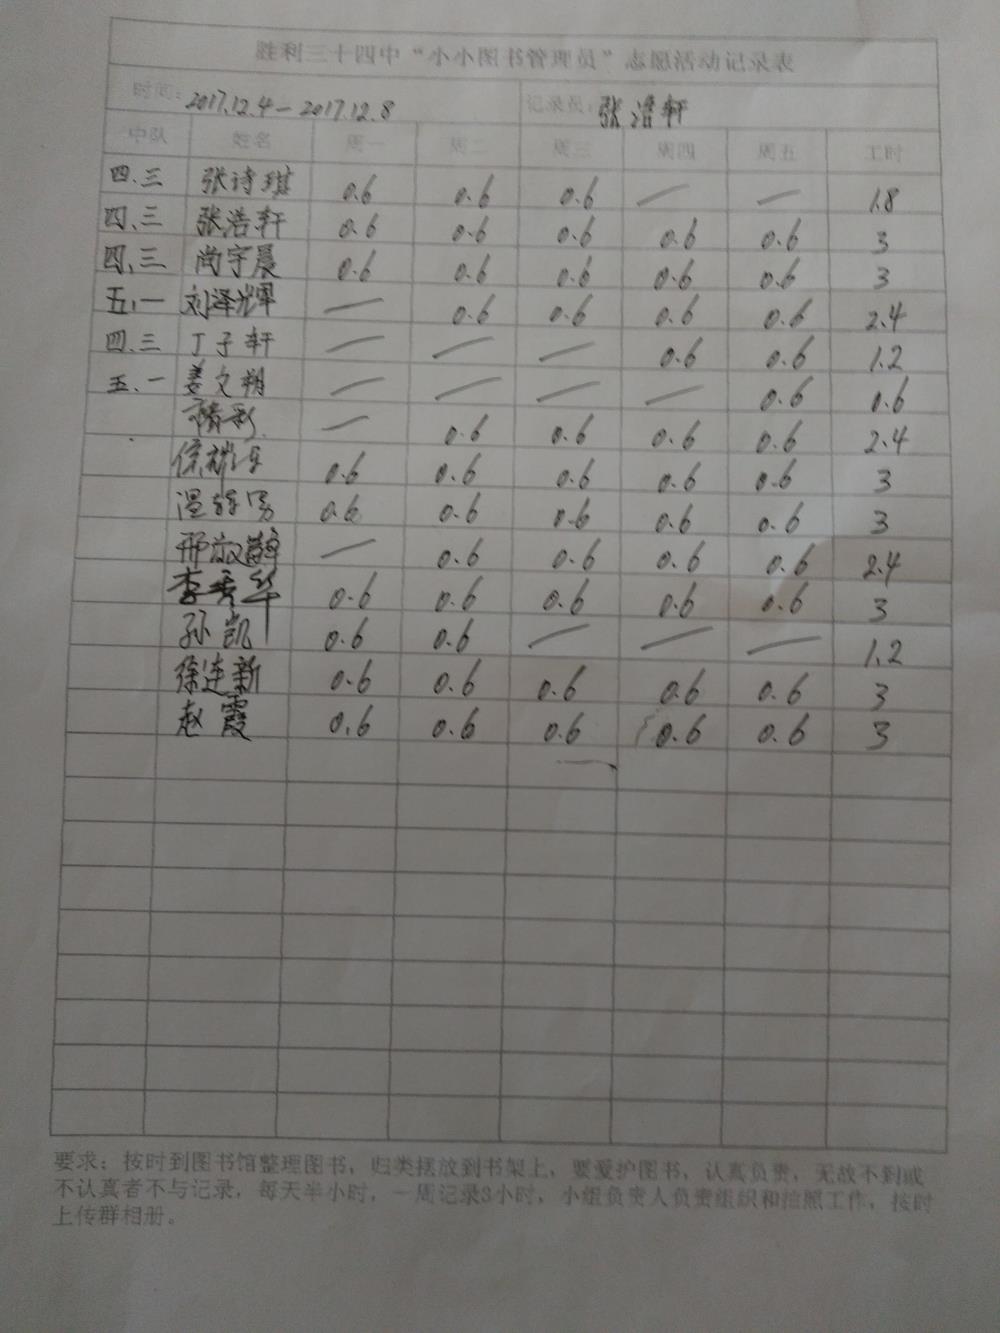 胜利三十四中“小小图书管理员”志愿活动记录表
时间：2017.12.4－2017.12.8 记录员：张浩轩
中队 姓名 周一 周二 周三 周四 周五 工时
四.三 张诗琪 0.6 0.6 0.6 — — 1.8
四.三 张浩轩 0.6 0.6 0.6 0.6 0.6 3
四.三 尚宇晨 0.6 0.6 0.6 0.6 0.6 3
五.一 刘泽辉 — 0.6 0.6 0.6 0.6 2.4
四.三 丁子轩 — — — 0.6 0.6 1.2
五.一 姜文朔 — — — — 0.6 0.6
— 0.6 0.6 0.6 0.6 2.4
0.6 0.6 0.6 0.6 0.6 3
温 0.6 0.6 0.6 0.6 0.6 3
邢 — 0.6 0.6 0.6 0.6 2.4
李秀华 0.6 0.6 0.6 0.6 0.6 3
孙凯 0.6 0.6 — — — 1.2
徐连新 0.6 0.6 0.6 0.6 0.6 3
赵霞 0.6 0.6 0.6 0.6 0.6 3
要求：按时到图书馆整理图书，归类摆放到书架上，要爱护图书，认真负责，无故不到或
不认真者不与记录，每天半小时，一周记录3小时，小组负责人负责组织和拍照工作，按时
上传群相册。